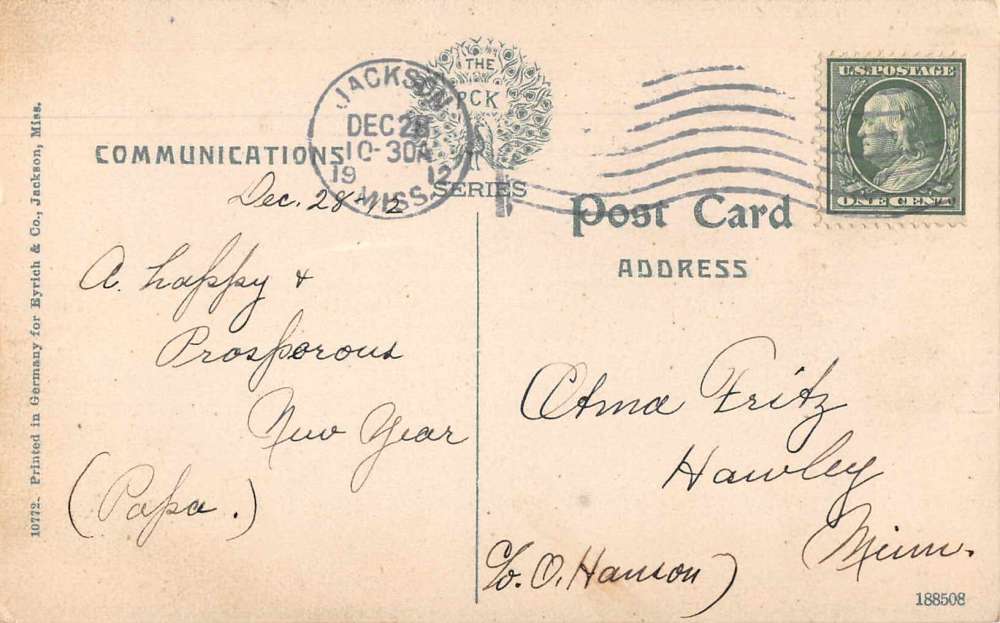 10772. Printed in Germany for Eyrich & Co., Jackson, Miss.
COMMUNICATIONS
JACKSON
DEC 28
10-30A
19 12
MISS.
THE
PCK
SERIES
U.S. POSTAGE
ONE CENT
Post Card
ADDRESS
Dec. 28-12
A. happy &
Prosporous
New Year
(Papa.)
Fritz
Hawley
Minn.
C/o. O. Hanson)
188508